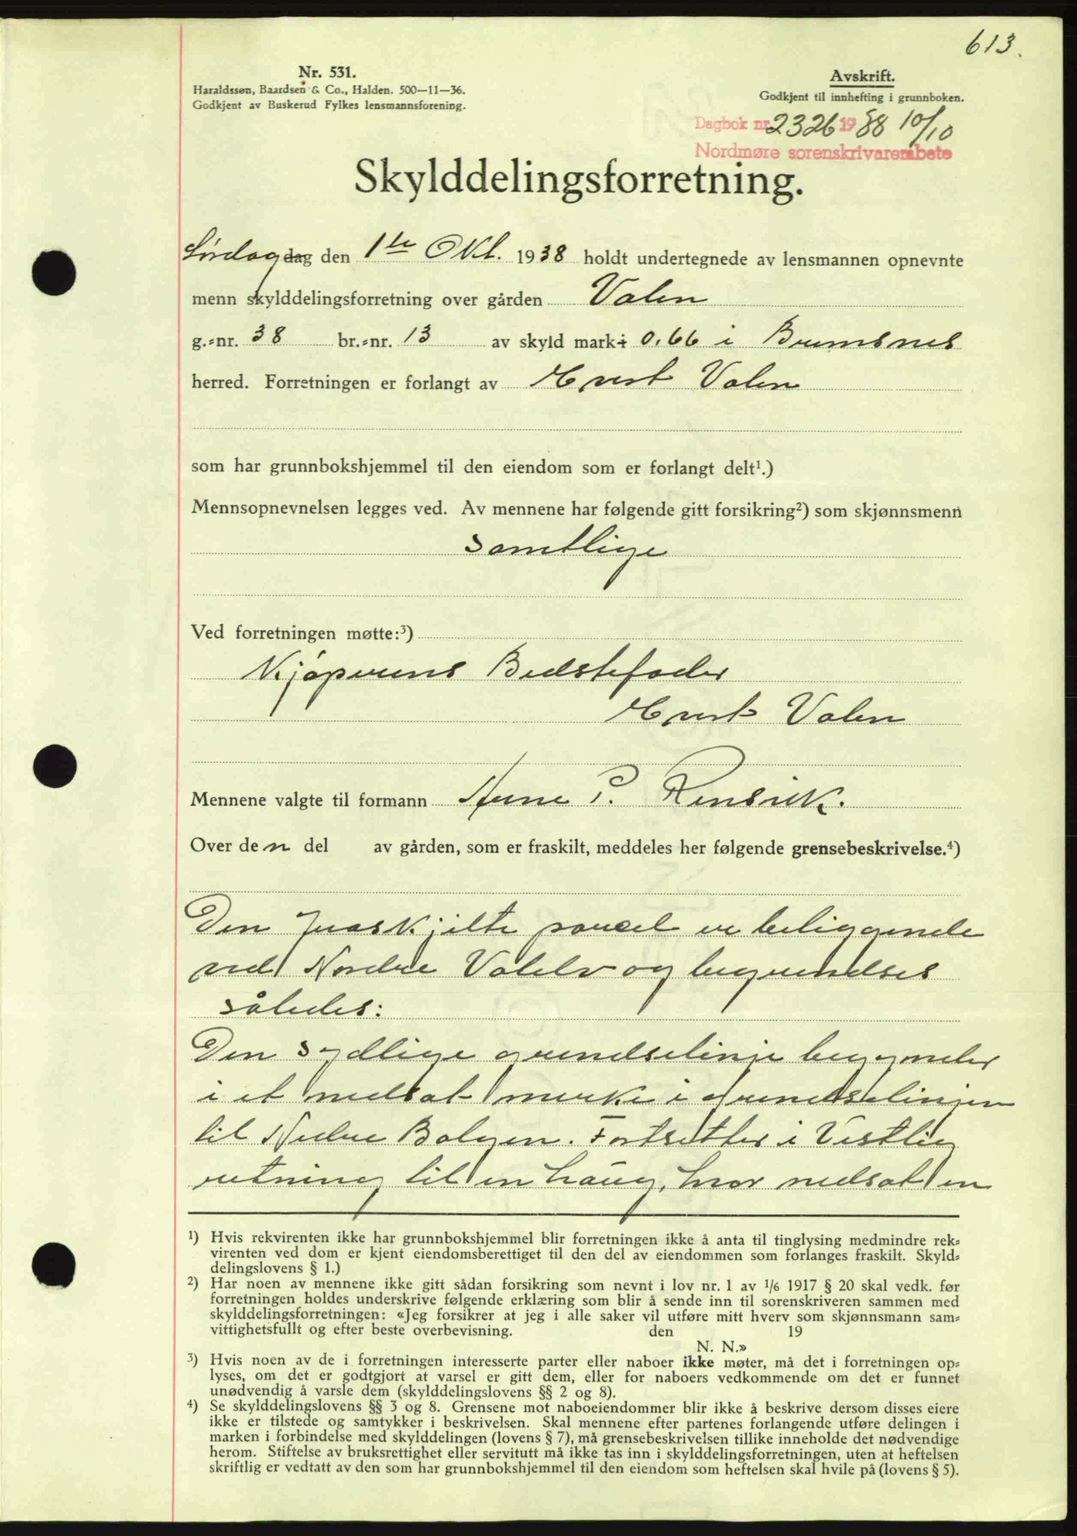 613.
Nr. 531.
Haraldssøn, Baardsen & Co., Halden. 500—11—36.
Godkjent av Buskerud Fylkes lensmannsforening.
Avskrift.
Godkjent til innhefting i grunnboken.
Dagbok nr. 2326 1938 10/10
Nordmøre sorenskrivarembete
Skylddelingsforretning.
Lørdag dag den 1ste Okt. 1938 holdt undertegnede av lensmannen opnevnte
menn skylddelingsforretning over gården Valen
g.=nr. 38 br.=nr. 13 av skyld mark 0,66 i Bremsnes
herred. Forretningen er forlangt av Evert Valen
som har grunnbokshjemmel til den eiendom som er forlangt delt¹.)
Mennsopnevnelsen legges ved. Av mennene har følgende gitt forsikring²) som skjønnsmenn
samtlige
Ved forretningen møtte:³)
Kjøperens Bedstefader
Evert Valen
Mennene valgte til formann Arne P. Rensvik.
Over den del av gården, som er fraskilt, meddeles her følgende grensebeskrivelse.⁴)
Den fraskjilte parcel er beliggende
ved Nordre Valelv og begrendses
således:
Den sydlige grendselinje begynder
i et nedsat merke i grendselinjen
til Nedre Bolgen. Fortsetter i Vestlig
retning til en haug, hvor nedsat en
¹) Hvis rekvirenten ikke har grunnbokshjemmel blir forretningen ikke å anta til tinglysing medmindre rek=
virenten ved dom er kjent eiendomsberettiget til den del av eiendommen som forlanges fraskilt. Skyld=
delingslovens § 1.)
²) Har noen av mennene ikke gitt sådan forsikring som nevnt i lov nr. 1 av ¹/₆ 1917 § 20 skal vedk. før
forretningen holdes underskrive følgende erklæring som blir å sende inn til sorenskriveren sammen med
skylddelingsforretningen: «Jeg forsikrer at jeg i alle saker vil utføre mitt hverv som skjønnsmann sam=
vittighetsfullt og efter beste overbevisning. den 19
N. N.»
³) Hvis noen av de i forretningen interesserte parter eller naboer ikke møter, må det i forretningen op=
lyses, om det er godtgjort at varsel er gitt dem, eller for naboers vedkommende om det er funnet
unødvendig å varsle dem (skylddelingslovens §§ 2 og 8).
⁴) Se skylddelingslovens §§ 3 og 8. Grensene mot naboeiendommer blir ikke å beskrive dersom disses eiere
ikke er tilstede og samtykker i beskrivelsen. Skal mennene efter partenes forlangende utføre delingen i
marken i forbindelse med skylddelingen (lovens § 7), må grensebeskrivelsen tillike inneholde det nødvendige
herom. Stiftelse av bruksrettighet eller servitutt må ikke tas inn i skylddelingsforretningen, uten at heftelsen
skriftlig er vedtatt av den som har grunnbokshjemmel til den eiendom som heftelsen skal hvile på (lovens § 5).